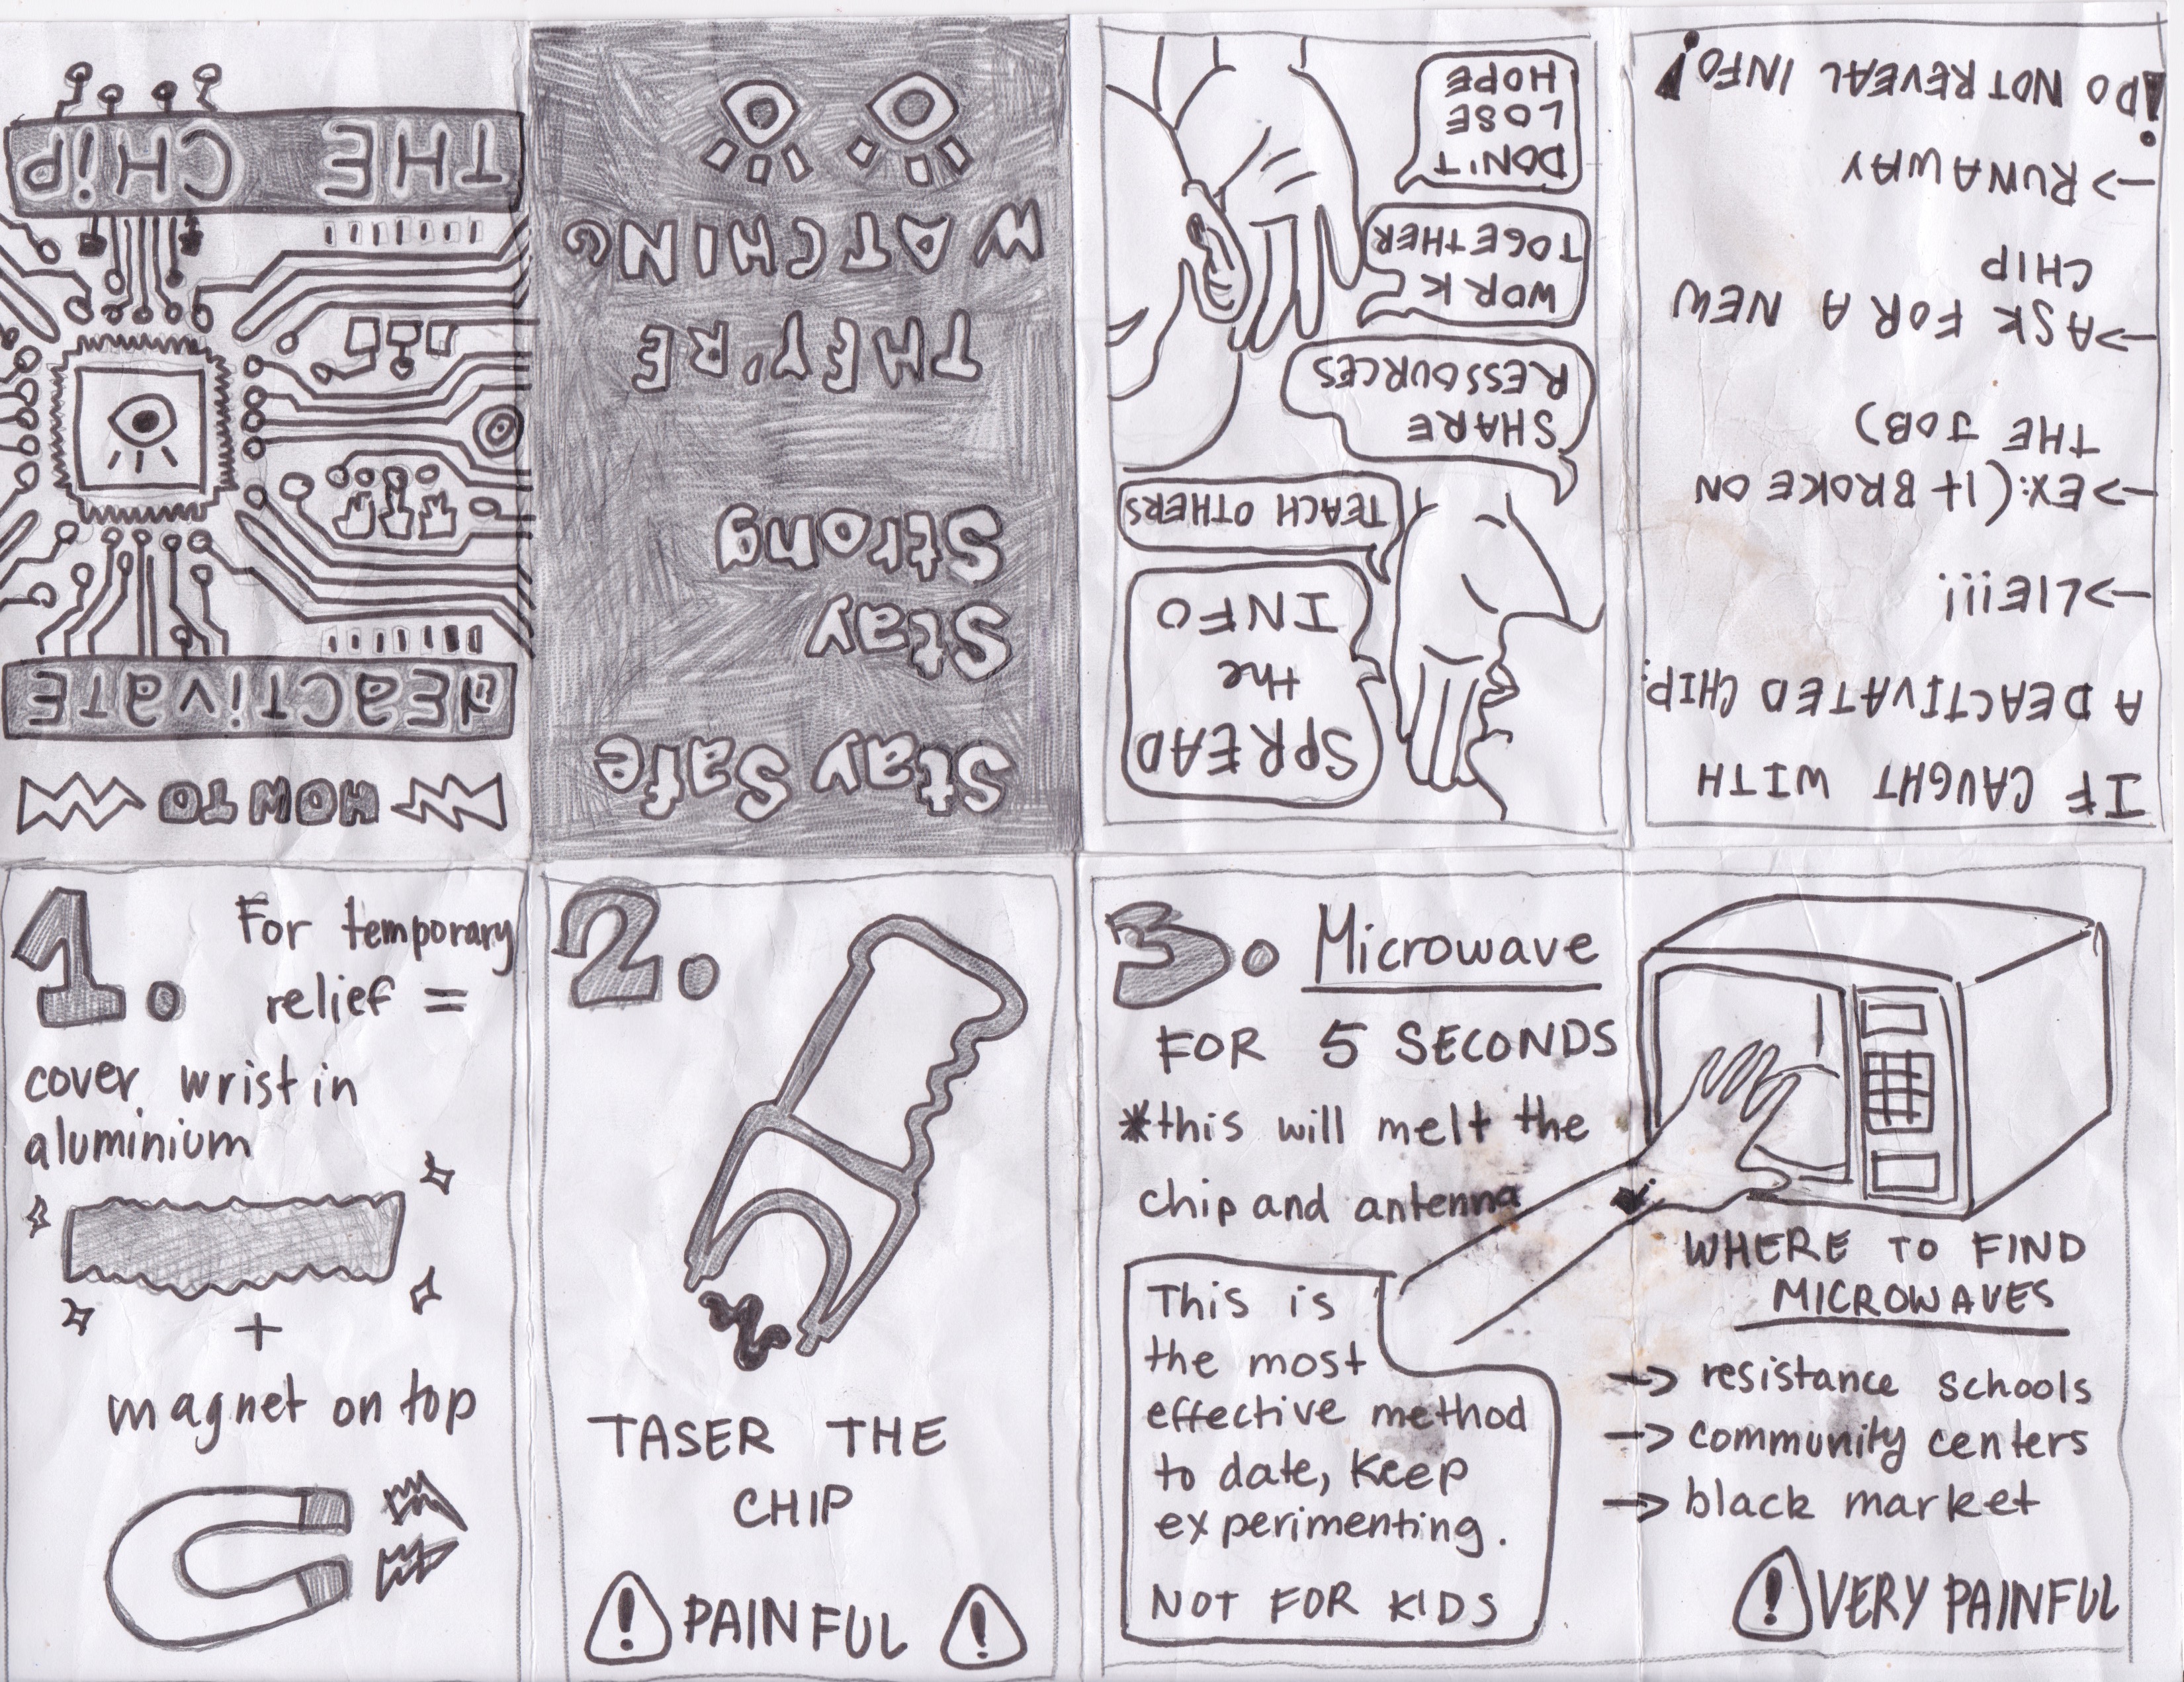 HOW TO
dEaCTiVaTE
THE CHip
1. For temporary
relief =
cover wrist in
aluminium
+
magnet on top
2.
TASER THE
CHIP
! PAINFUL !
3. Microwave
FOR 5 SECONDS
*this will melt the
chip and antenna
This is
the most
effective method
to date, Keep
experimenting.
NOT FOR KIDS
WHERE TO FIND
MICROWAVES
-> resistance schools
-> community centers
-> black market
! VERY PAINFUL
IF CAUGHT WITH
A DEACTIVATED CHIP:
->LIE!!!
->EX:(It BROKE ON
THE JOB)
->ASK FOR A NEW
CHIP
->RUNAWAY
!DO NOT REVEAL INFO!
SPREAD
the
INFO
TEACH OTHERS
SHARE
RESSOURCES
WORK
TOGETHER
DON'T
LOSE
HOPE
Stay Safe
Stay
Strong
THEY'RE
WATCHING